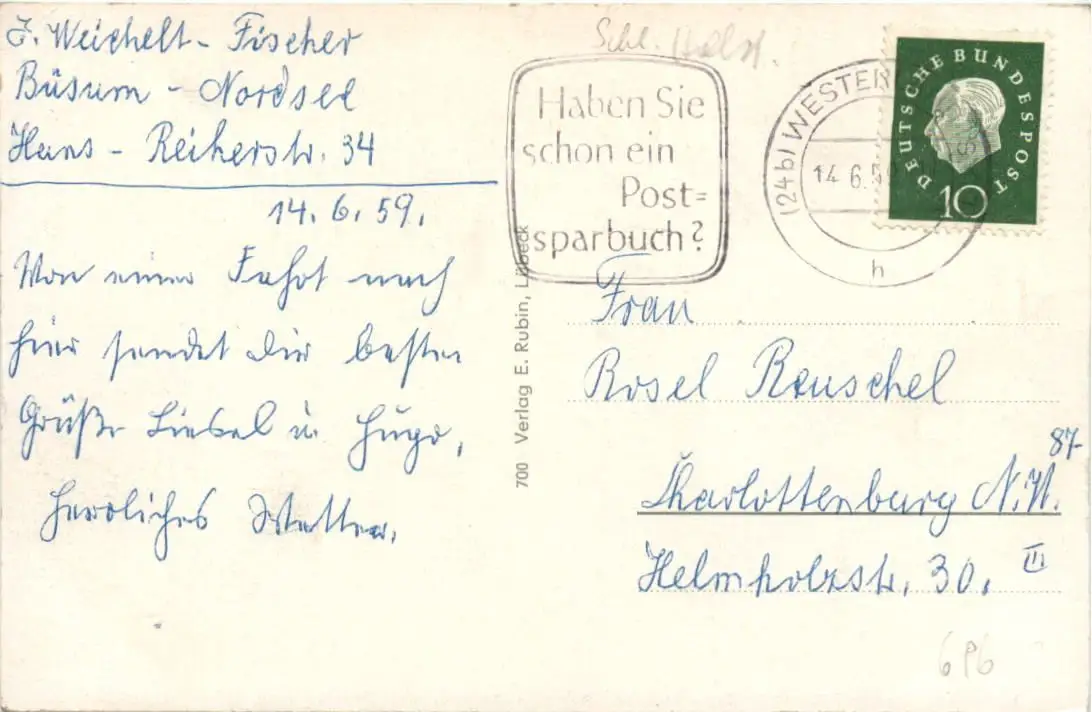 J. Weichelt - Fischer
Büsum - Nordsee
Hans - Reiherstr. 34
14. 6. 59.
Von einer Fahrt nach
hier sendet Dir beste
Grüße Liesel u. Hugo,
herrliches Wetter.
700 Verlag E. Rubin, Lübeck
Schl. Holst.
Haben Sie
schon ein
Post=
sparbuch?
(24b) WESTER
14.6.59
h
DEUTSCHE BUNDESPOST
10
Frau
Rosel Reuschel
87-
Charlottenburg N.W.
Helmholzstr. 30. III
696